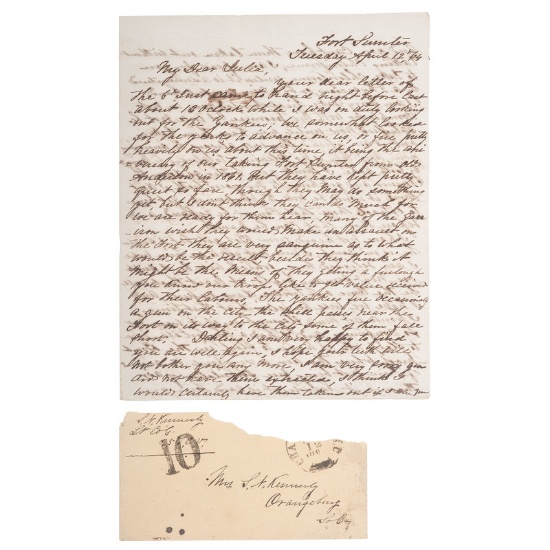 Fort Sumter
Tuesday April 12 '64
My Dear
your dear letter of
the 6th Inst came to hand night before last
about 10 Oclock while I was on duty looking
out for the Yankies, we somewhat looked
for the yanks to advance on us, or fire pretty
heavily on us about this time, it being the
of our taking Fort Sumter from
Anderson in 1861, but they have kept pretty
quiet so fare, through they may do something
yet but I dont think they can do much for
we are ready for them hear, many of the
wish they would make an assault on
the Fort they are very sanguine as to what
would be the result besides they think it
might be the means of they getting a furlough
you know our troops like to get well
for their labours. The yankies fire
a gun on the City the shells passes near the
Fort on its way to the City some of them fall
short. Darling I am very happy to find
you are well again, I hope tooth ache will
not bother you any more, I am very sorry you
did not have them extracted, I think I
would certainly have them taken out if I
S. N. Kennerly
Lt Co C
25
10
CHA
12
Mrs S. N. Kennerly
Orangeburg
So Ca